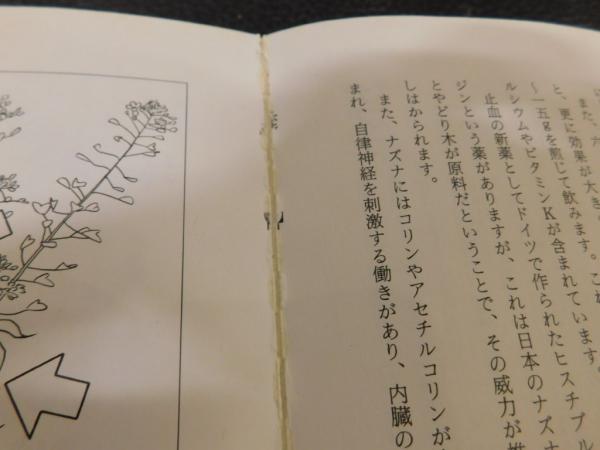 また、六
と、更に効果が大き
〜一五gを煎じて飲みます。これ
ルシウムやビタミンKが含まれています。
止血の新薬としてドイツで作られたヒスチプル
ジンという薬がありますが、これは日本のナズナ
とやどり木が原料だということで、その威力が推
しはかられます。
また、ナズナにはコリンやアセチルコリンが
まれ、自律神経を刺激する働きがあり、内臓の